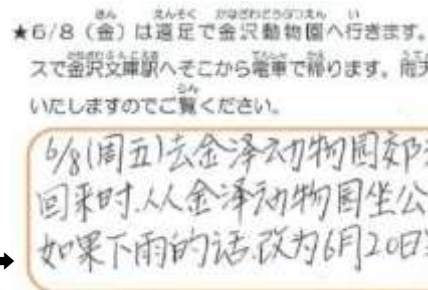 ★6/8(金)は遠足で金沢動物園へ行きます。
スで金沢文庫駅へそこから電車で帰ります。雨天
いたしますのでご覧ください。
6/8(周五)去金泽动物园郊
回来时.从金泽动物园坐公
如果下雨的话.改为6月20日